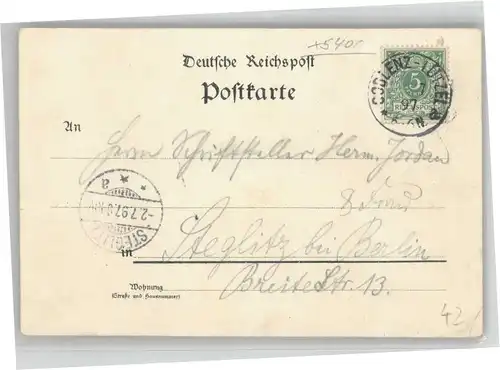 +5400
Deutsche Reichspost
Postkarte
5
REICHSPOST
COBLENZ-LÜTZEL
97
An
Herrn Schriftsteller Herm. Jordan
& Frau
STEGLITZ
a
2.7.97
in Steglitz bei Berlin
Breite Str. 13.
Wohnung
(Straße und Hausnummer)
42